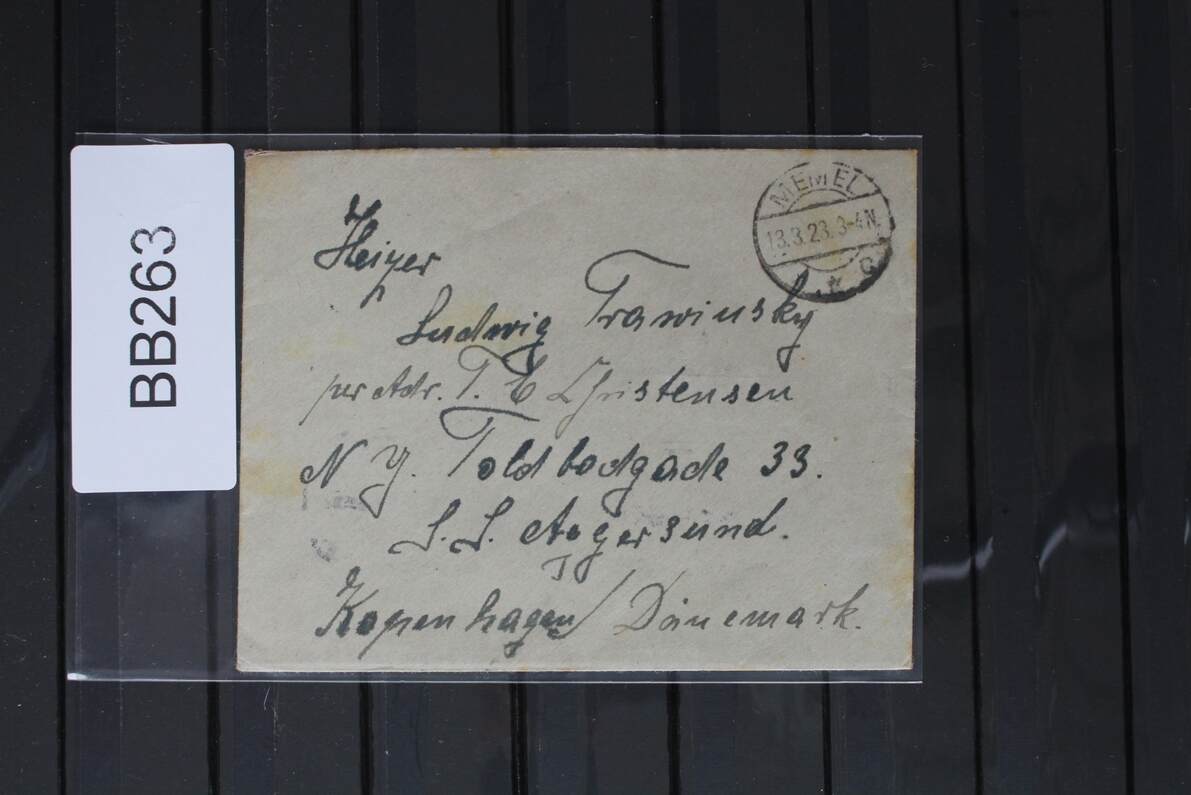 BB263
MEMEL
13.3.23.3-4N.
* C
Heizer
Ludwig Trawinsky
per Adr. T. C Christensen
N Y. Toldbodgade 33.
S.S. Aggersund.
Kopenhagen/ Dänemark.